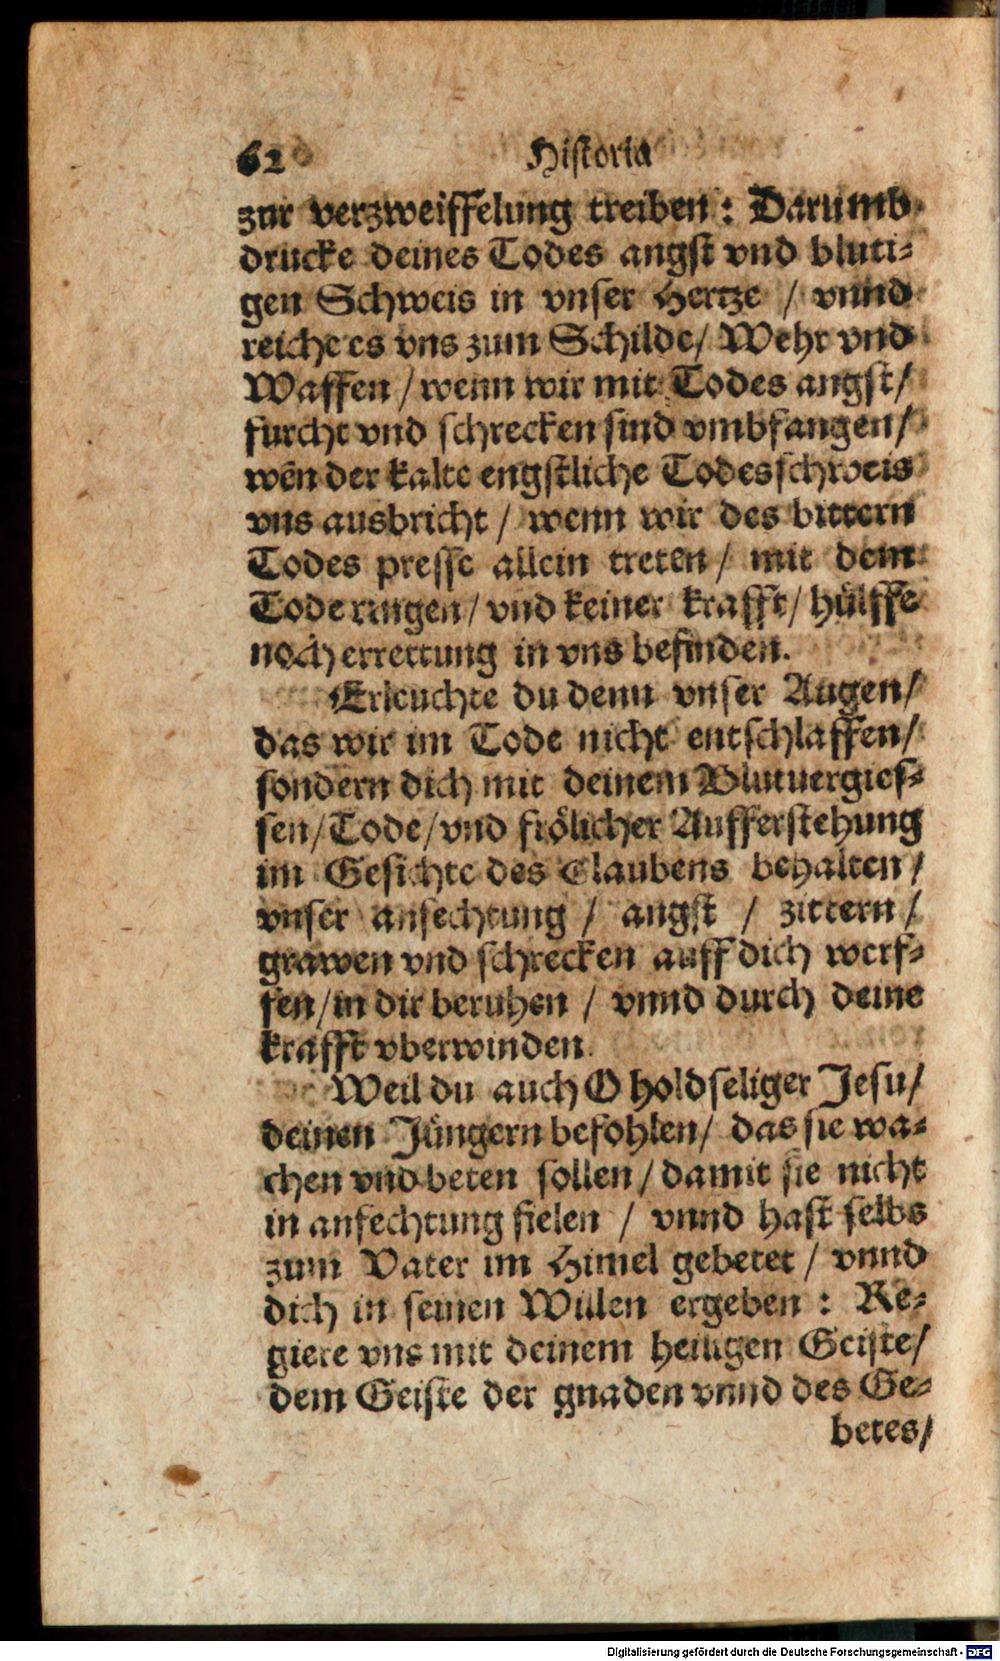 62 Historia
zur verzweiffelung treiben: Darumb
drucke deines Todes angst vnd bluti-
gen Schweis in vnser Hertze / vnnd
reiche es vns zum Schilde/ Wehr vnd
Waffen / wenn wir mit Todes angst/
furcht vnd schrecken sind vmbfangen/
wēn der kalte engstliche Todesschweis
vns ausbricht / wenn wir des bittern
Todes presse allein treten / mit dem
Tode ringen / vnd keiner krafft/ hülffe
noch errettung in vns befinden.
Erleuchte du denn vnser Augen/
das wir im Tode nicht entschlaffen/
sondern dich mit deinem Blutuergies-
sen/Tode/vnd frölicher Aufferstehung
im Gesichte des Glaubens behalten /
vnser anfechtung / angst / zittern /
grawen vnd schrecken auff dich werf-
fen/in dir beruhen / vnnd durch deine
krafft vberwinden.
Weil du auch O holdseliger Jesu/
deinen Jüngern befohlen/ das sie wa-
chen vnd beten sollen / damit sie nicht
in anfechtung fielen / vnnd hast selbs
zum Vater im Himel gebetet / vnnd
dich in seinen Willen ergeben : Re-
giere vns mit deinem heiligen Geiste/
dem Geiste der gnaden vnnd des Ge-
betes/
Digitalisierung gefördert durch die Deutsche Forschungsgemeinschaft - DFG